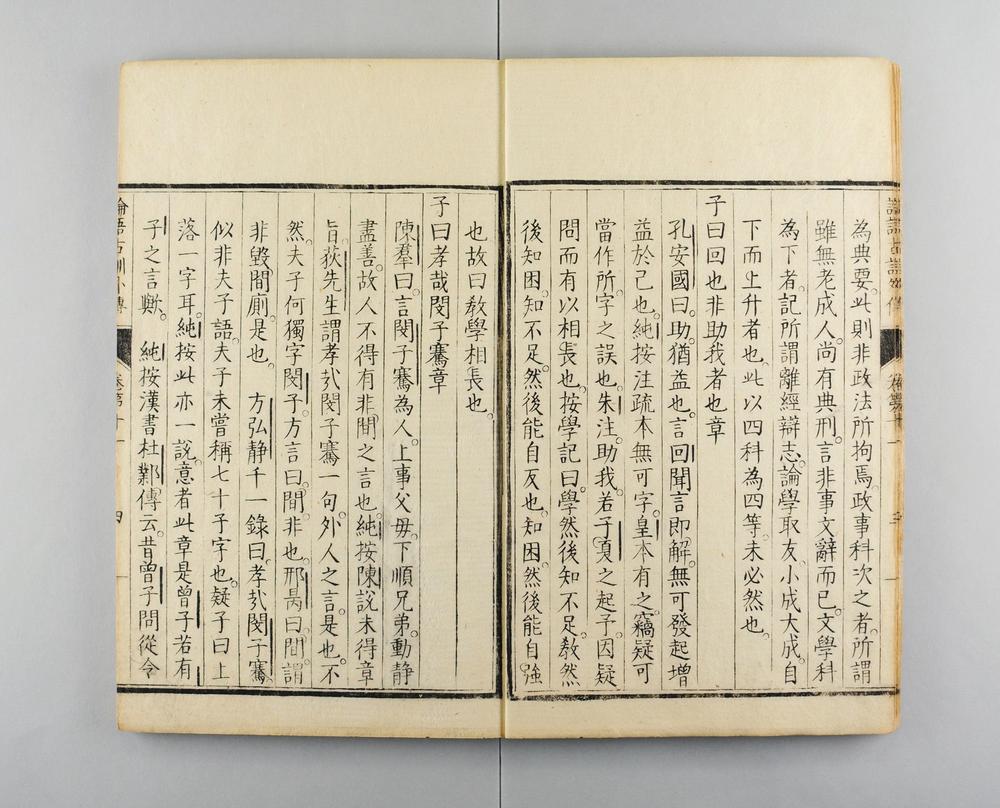 為典要。此則非政法所拘焉。政事科次之者。所謂
雖無老成人。尚有典刑。言非事文辭而已。文學科
為下者。記所謂離經辯志。論學取友。小成大成。自
下而上升者也。此以四科為四等。未必然也。
子曰回也非助我者也章
孔安國曰。助。猶益也。言回聞言即解。無可發起增
益於己也。純按注疏本無可字。皇本有之。竊疑可
當作所。字之誤也。朱注。助我。若子夏之起予。因疑
問而有以相長也。按學記曰。學然後知不足。教然
後知困。知不足。然後能自反也。知困。然後能自強
也。故曰教學相長也。
子曰孝哉閔子騫章
陳羣曰。言閔子騫為人。上事父母。下順兄弟。動靜
盡善。故人不得有非間之言也。純按陳說未得章
旨。荻先生謂孝哉閔子騫一句。外人之言。是也。不
然。夫子何獨字閔子。方言曰。間。非也。邢昺曰。間。謂
非毀間廁。是也。 方弘静千一錄曰。孝哉閔子騫
似非夫子語。夫子未嘗稱七十子字也。疑子曰上
落一字耳。純按此亦一說。意者此章是曾子若有
子之言歟。 純按漢書杜鄴傳云。昔曾子問從令
論語古訓外傳 卷第十一 四